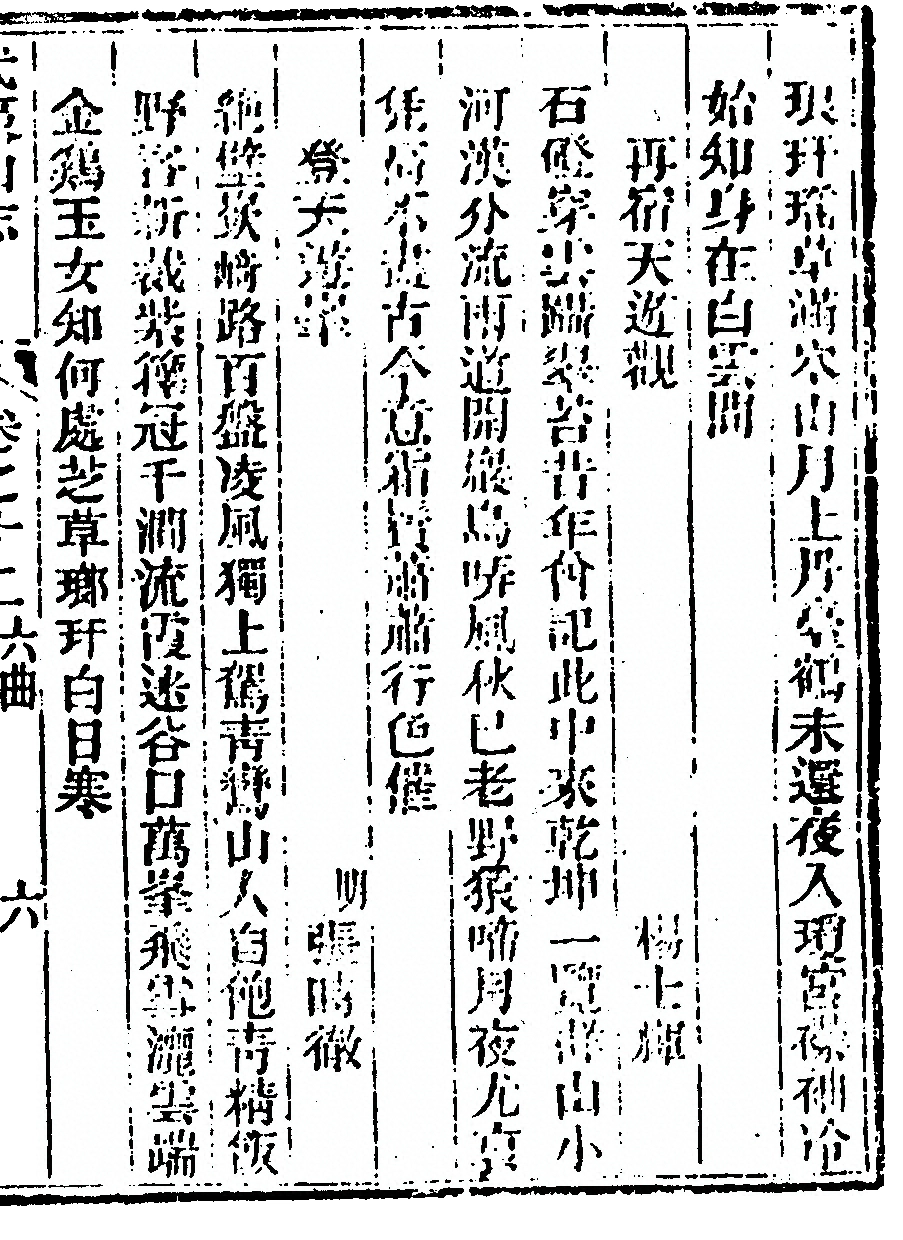 琅玕瑤草滿空山月上丹臺鶴未還夜入珸宮襟袖冷
始知身在白雲間
再宿天遊觀
楊士
石磴穿雲踏翠苔昔年曾記此中來乾坤一覽群山小
河漢分流雨道開巖鳥哢風秋已老野猿啼月夜尤哀
凭高不盡古今意霜鬢蕭蕭行色催
登天遊峯
明
張時徹
絶壁嵚﨑路百盤凌風獨上駕青鸞山人自飽青精飯
野客新裁紫籜冠千澗流霞迷谷口萬峯飛雪灑雲端
金鷄玉女知何處芝草瑯玕白日寒
武夷山志
卷之十二
六曲
六